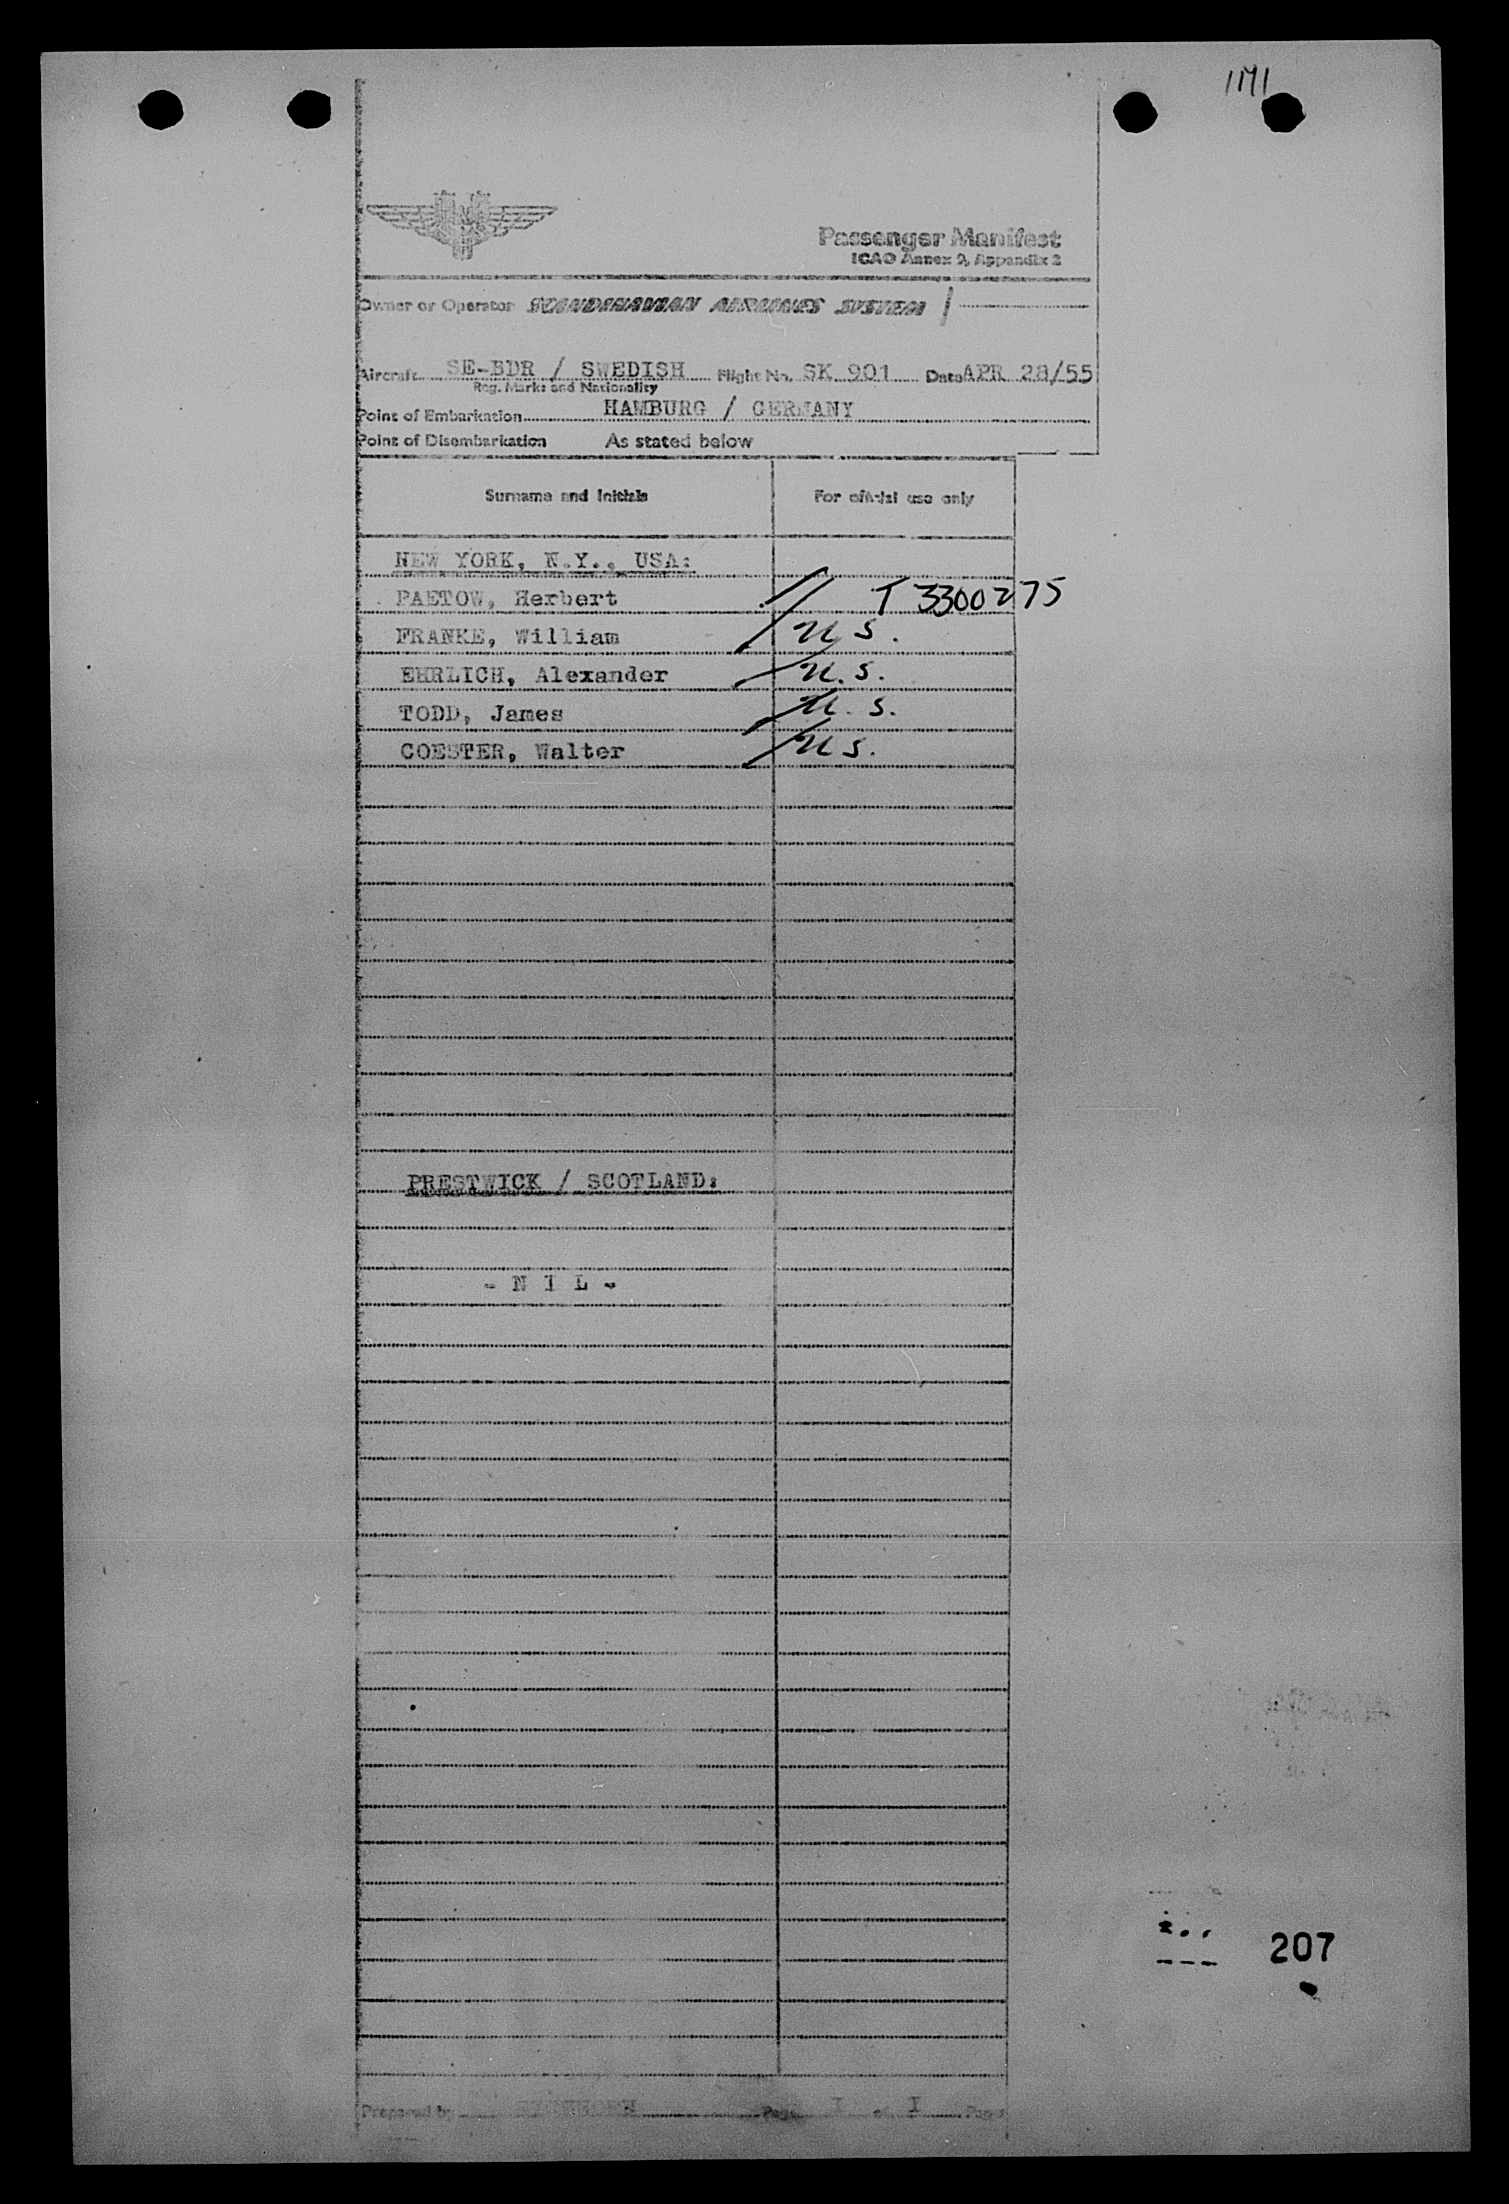 Passenger Manifest
ICAO Annex 9, Appendix 2
Owner or Operator SCANDINAVIAN AIRLINES SYSTEM
Aircraft SE-BDR / SWEDISH Flight No. SK 901 Date APR 28/55
Reg. Marks and Nationality
Point of Embarkation HAMBURG / GERMANY
Point of Disembarkation As stated below
Surname and Initials For official use only
NEW YORK, N.Y., USA:
PAETOW, Herbert T 3300275
FRANKE, William U.S.
EHRLICH, Alexander U.S.
TODD, James U.S.
COESTER, Walter U.S.
PRESTWICK / SCOTLAND:
- N I L -
207
Prepared by Page I of I Pages